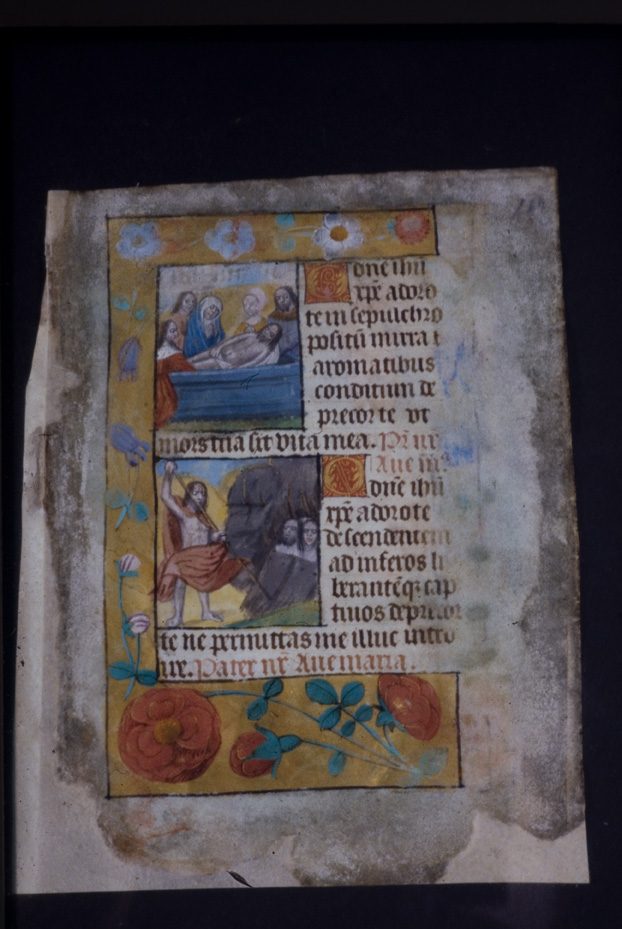 O dñe ihu
xpe adoro
te in sepulchro
positū mirra t
aromatibus
conditum de
precor te vt
mors tua sit vita mea. Pr nr
Aue m
O dñe ihu
xpe adoro te
descendentem
ad inferos li
berantēq; cap
tiuos deprecor
te ne permittas me illuc intro
ire. Pater nr Aue maria.